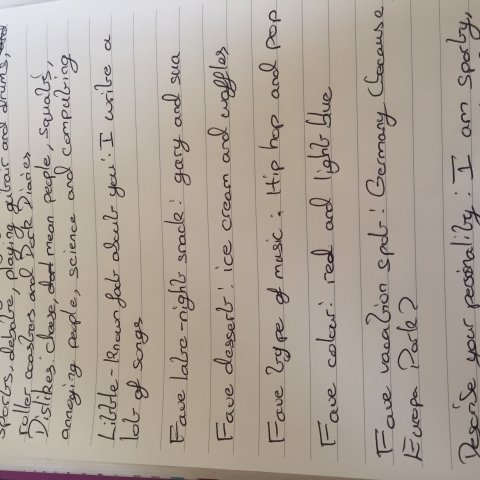 sports, debate, playing guitar and drums, and
roller coasters and Dork Diaries
Dislikes: cheese, dont mean people, squats,
annoying people, science and computing
Little-known fact about you: I write a
lot of songs
Fave late-night snack: gary and sua
Fave dessert: ice cream and waffles
Fave type of music: Hip hop and pop
Fave colour: red and light blue
Fave vacation spot: Germany (because
Europa Park?
Descrise your personality: I am sporty,